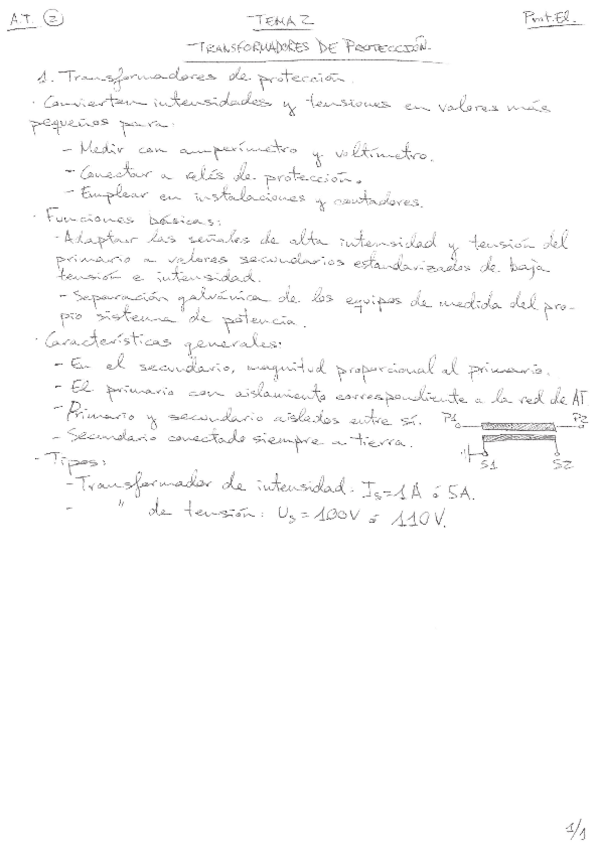 A.T. 2 TEMA 2 Prot.El.
TRANSFORMADORES DE PROTECCIÓN.
1. Transformadores de protección.
· Convierten intensidades y tensiones en valores más
pequeños para:
- Medir con amperímetro y voltímetro.
- Conectar a relés de protección.
- Emplear en instalaciones y contadores.
· Funciones básicas:
- Adaptar las señales de alta intensidad y tensión del
primario a valores secundarios estandarizados de baja
tensión e intensidad.
- Separación galvánica de los equipos de medida del pro-
pio sistema de potencia.
· Características generales:
- En el secundario, magnitud proporcional al primario.
- El primario con aislamiento correspondiente a la red de AT
- Primario y secundario aislados entre sí. P1 P2
- Secundario conectado siempre a tierra.
S1 S2
- Tipos:
- Transformador de intensidad. Is=1A ó 5A.
- " de tensión: Us=100V ó 110V.
1/1